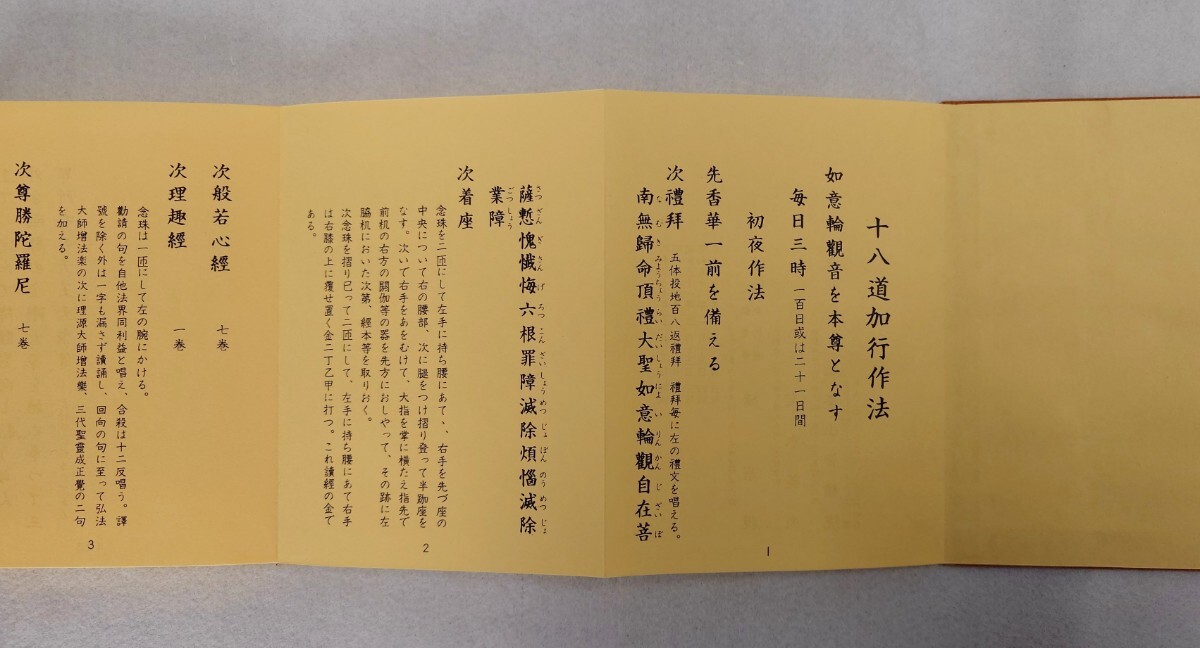 十八道加行作法
如意輪觀音を本尊となす
毎日三時 一百日或は二十一日間
初夜作法
先香華一前を備える
次禮拜 五体投地百八返禮拜 禮拜毎に左の禮文を唱える。
南無歸命頂禮大聖如意輪觀自在菩
なむきみようちようらいだいしようによいりんかんじざいぼ
1
薩慙愧懺悔六根罪障滅除煩惱滅除
さつざんぎさんげろつこんざいしようめつじよぼんのうめつじよ
業障
ごつしよう
次着座
念珠を二匝にして左手に持ち腰にあて、右手を先づ座の
中央について右の腰部、次に腿をつけ摺り登って半跏座を
なす。次いで右手をあをむけて、大指を掌に横たえ指先で
前机の右方の閼伽等の器を先方におしやって、その跡に左
脇机においた次第、經本等を取りおく。
次念珠を摺り已って二匝にして、左手に持ち腰にあて右手
は右膝の上に覆せ置く金二丁乙甲に打つ。これ讀經の金で
ある。
2
次般若心經 七巻
次理趣經 一巻
念珠は一匝にして左の腕にかける。
勸請の句を自他法界同利益と唱え、合殺は十二反唱う。譯
號を除く外は一字も漏さず讀誦し、回向の句に至って弘法
大師增法楽の次に理源大師增法樂、三代聖靈成正覺の二句
を加える。
次尊勝陀羅尼 七巻
3